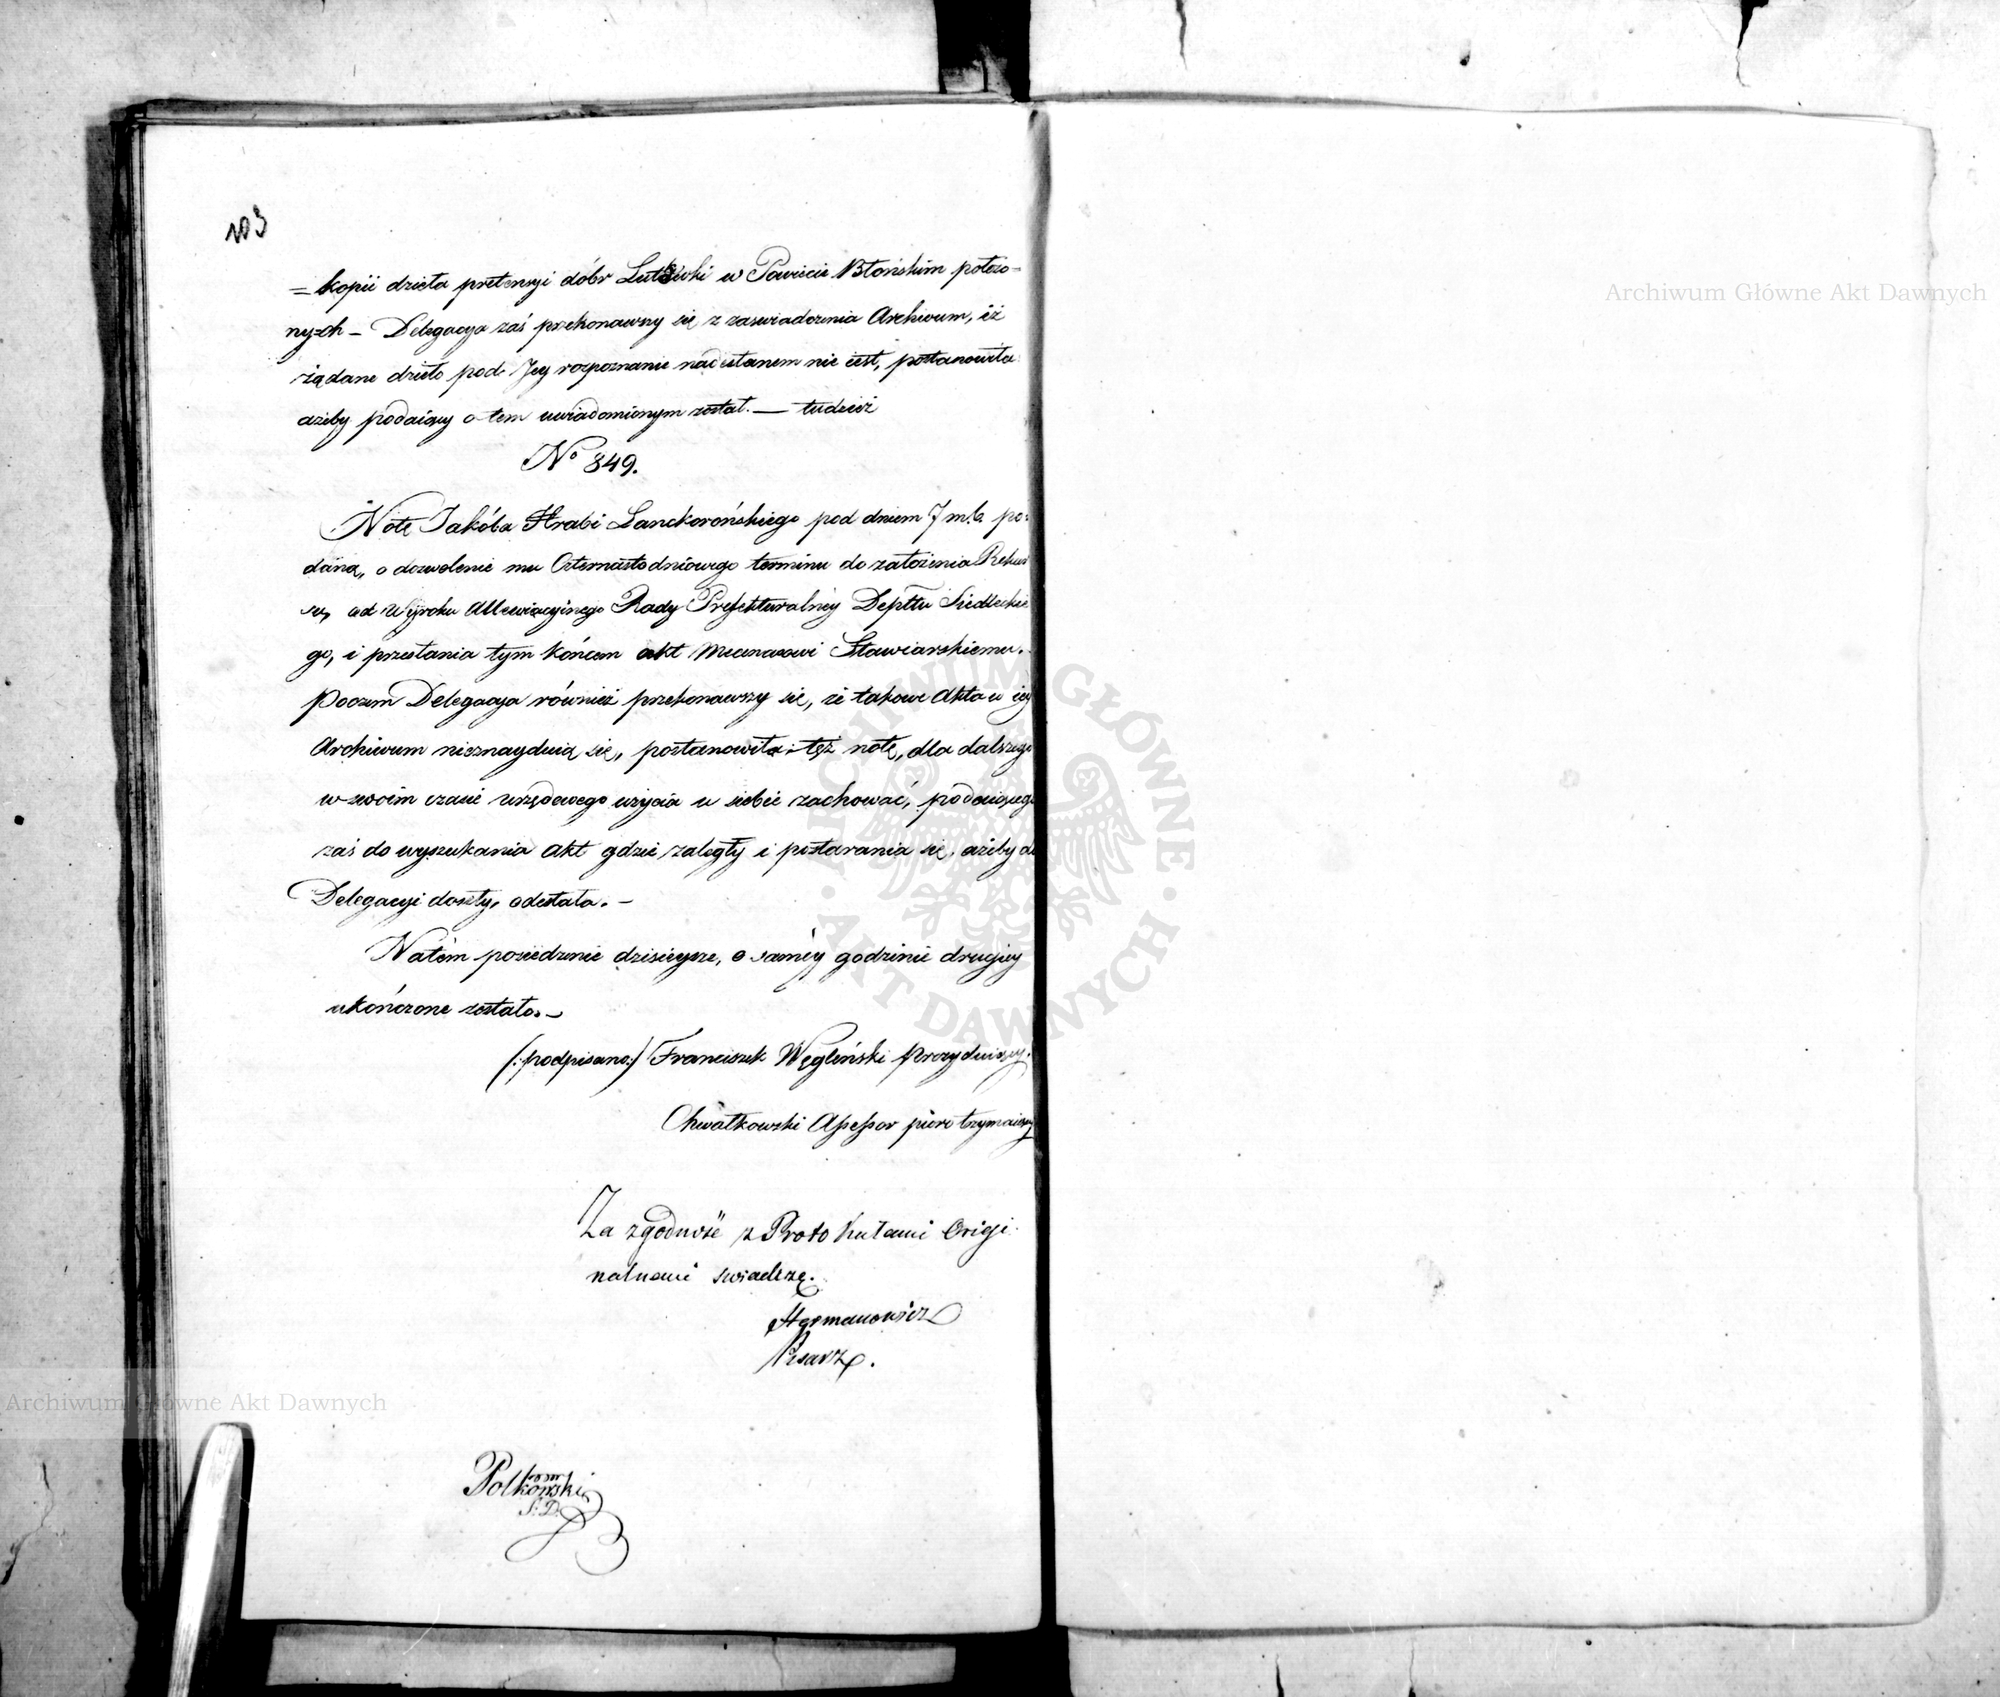 103
= kopii dzieła pretensyi dóbr Lutkówki w Powiecie Błońskim położo=
nych – Delegacya zaś przekonawszy się z zaswiadczenia Archiwum, iż
żądane dzieło pod Jey rozpoznanie nadesłanem nie iest, postanowiła
ażeby podaiący o tem uwiadomionym został. — tudzież
No 849.
Notę Jakóba Hrabi Lanckorońskiego pod dniem 7 m. b. po=
daną, o dozwolenie mu Czternastodniowego terminu do założenia Rekur
su, od Wyroku Allewiacyinego Rady Prefekturalney Depttu Siedleckie
go, i przesłania tym końcem akt Mecenasowi Stawiarskiemu.
Poczem Delegacya również przekonawszy się, że takowe Akta w iey
Archiwum nieznayduią się, postanowiła i tęż notę, dla dalszego
w swoim czasie urzędowego użycia u siebie zachować, podaiącego
zaś do wyszukania akt gdzie zaległy i postarania się, ażeby do
Delegacyi doszły, odesłała. –
Natém posiedzenie dzisieysze, o saméy godzinie drugiey
ukończone zostało. –
(: podpisano :) Franciszek Węgleński Prezyduiący.
Chwałkowski Assessor pióro trzymaiący
Za zgodność z Protokułami Origi
nalnemi swiadczę.
Hermanowicz
Pisarz.
Polkowski
S: D.
Archiwum Główne Akt Dawnych
Archiwum Główne Akt Dawnych
ARCHIWUM GŁÓWNE · AKT DAWNYCH ·